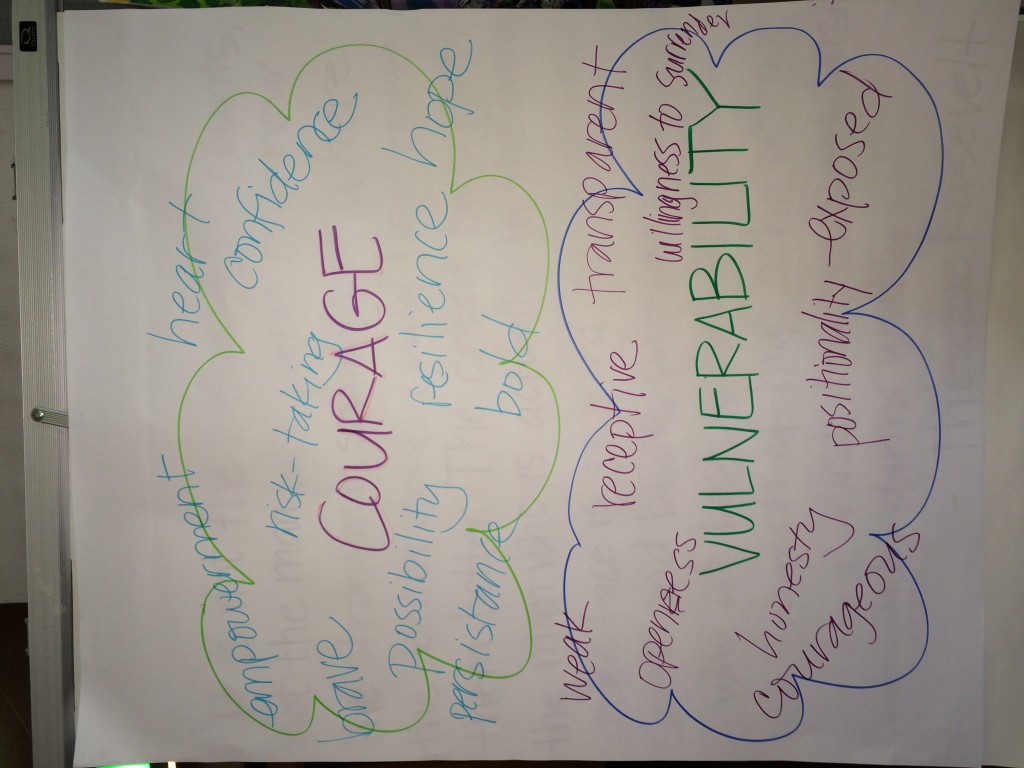 empowerment heart
risk-taking confidence
brave COURAGE
possibility resilience hope
persistance bold
weak receptive transparent
openness willingness to surrender
VULNERABILITY
honesty positionality - exposed
courageous